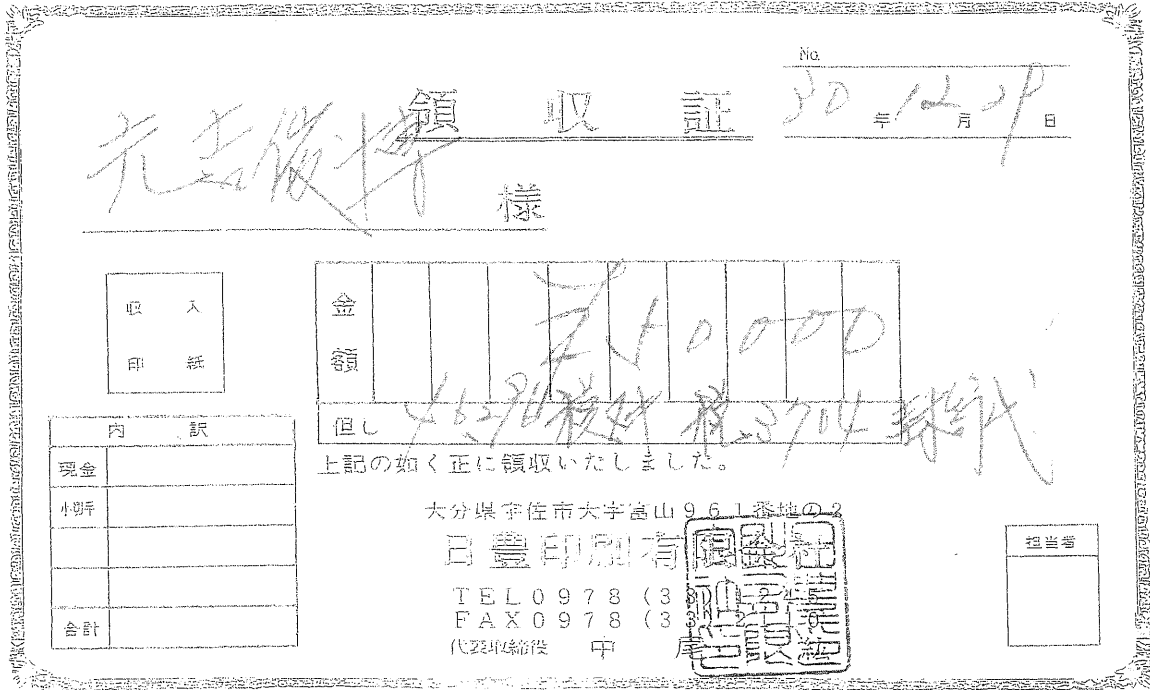 No.
領収証
30年12月29日
元吉俊博様
収入
印紙
金額 ¥50000
但し 46,296 税抜 税3704 封筒代
上記の如く正に領収いたしました。
内訳
現金
小切手
合計
大分県宇佐市大字富山961番地の2
日豊印刷有限会社
TEL0978(3
FAX0978(3
代表取締役 中尾
担当者